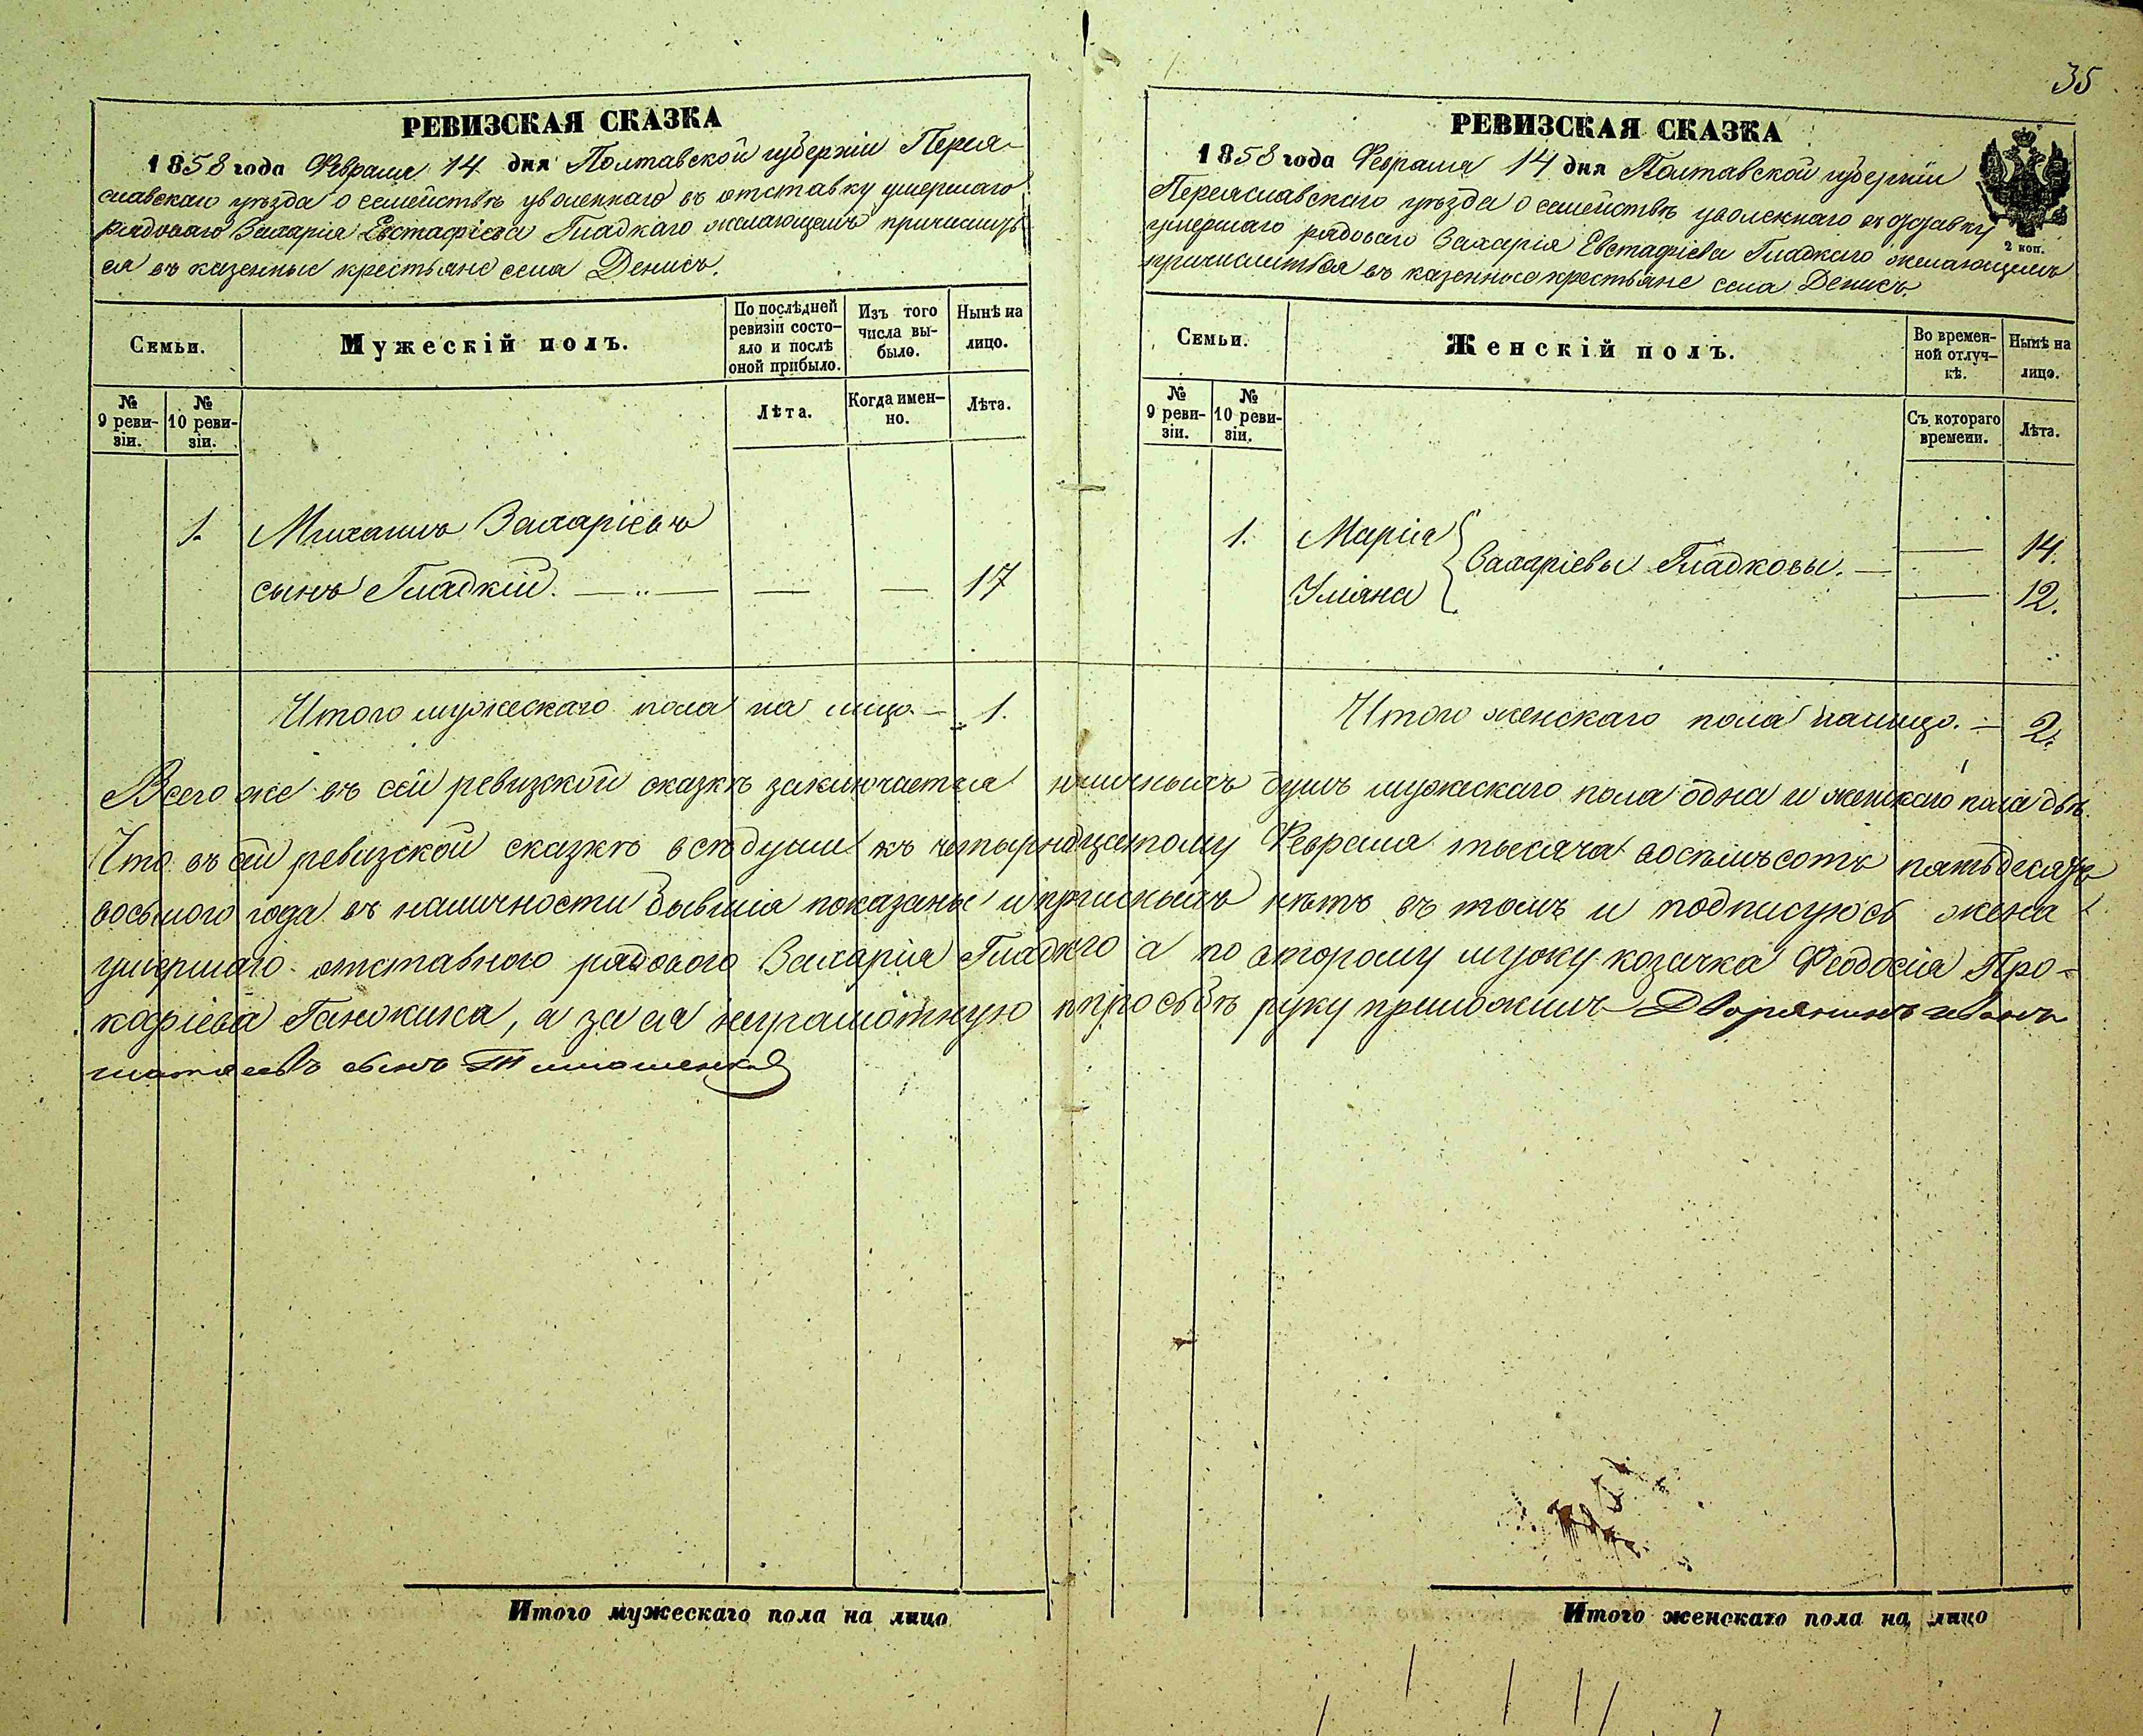 35
РЕВИЗСКАЯ СКАЗКА
1858 года Февраля 14 дня Полтавской губерніи Перея-
славскаго уѣзда о семействѣ уволеннаго въ отставку умершаго
рядоваго Захарія Евстафіева Гладкаго желающемъ причислить
ся въ казенные крестьяне села Денисъ.
Семьи.
Мужескій полъ.
По послѣдней
ревизіи состо-
яло и послѣ
оной прибыло.
Изъ того
числа вы-
было.
Нынѣ на
лицо.
№
9 реви-
зіи.
№
10 реви-
зіи.
Лѣта.
Когда имен-
но.
Лѣта.
1. Михаилъ Захаріевъ
сынъ Гладкій. 17
Итого мужескаго пола на лицо. — 1.
РЕВИЗСКАЯ СКАЗКА
1858 года Февраля 14 дня Полтавской губерніи
Переяславскаго уѣзда о семействѣ уволеннаго въ отставку
умершаго рядоваго Захарія Евстафіева Гладкаго желающемъ
причислиться въ казенные крестьяне села Денисъ.
2 коп.
Семьи.
Женскій полъ.
Во времен-
ной отлуч-
кѣ.
Нынѣ на
лицо.
№
9 реви-
зіи.
№
10 реви-
зіи.
Съ котораго
времени.
Лѣта.
1. Марія 14.
Захаріевы Гладковы. —
Уліяна 12.
Итого женскаго пола налицо. — 2.
Всего же въ сей ревизской сказкѣ заключается наличныхъ душъ мужескаго пола одна и женскаго пола двѣ.
Что въ сей ревизской сказкѣ всѣ души къ четырнадцатому Февраля тысяча восемьсотъ пятьдесятъ
восьмого года въ наличности бывшія показаны и прописныхъ нѣтъ въ томъ и подписуюсь жена
умершаго отставного рядового Захарія Гладкго а по второму мужу козачка Феодосія Про-
кофіева Ганжина, а за ея неграмотную и просьбѣ руку приложилъ Дворянинъ Иванъ
сынъ Тимошенко
Итого мужескаго пола на лицо
Итого женскаго пола на лицо